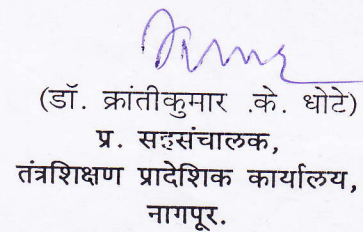 (डॉ. क्रांतीकुमार .के. धोटे)
प्र. सहसंचालक,
तंत्रशिक्षण प्रादेशिक कार्यालय,
नागपूर.